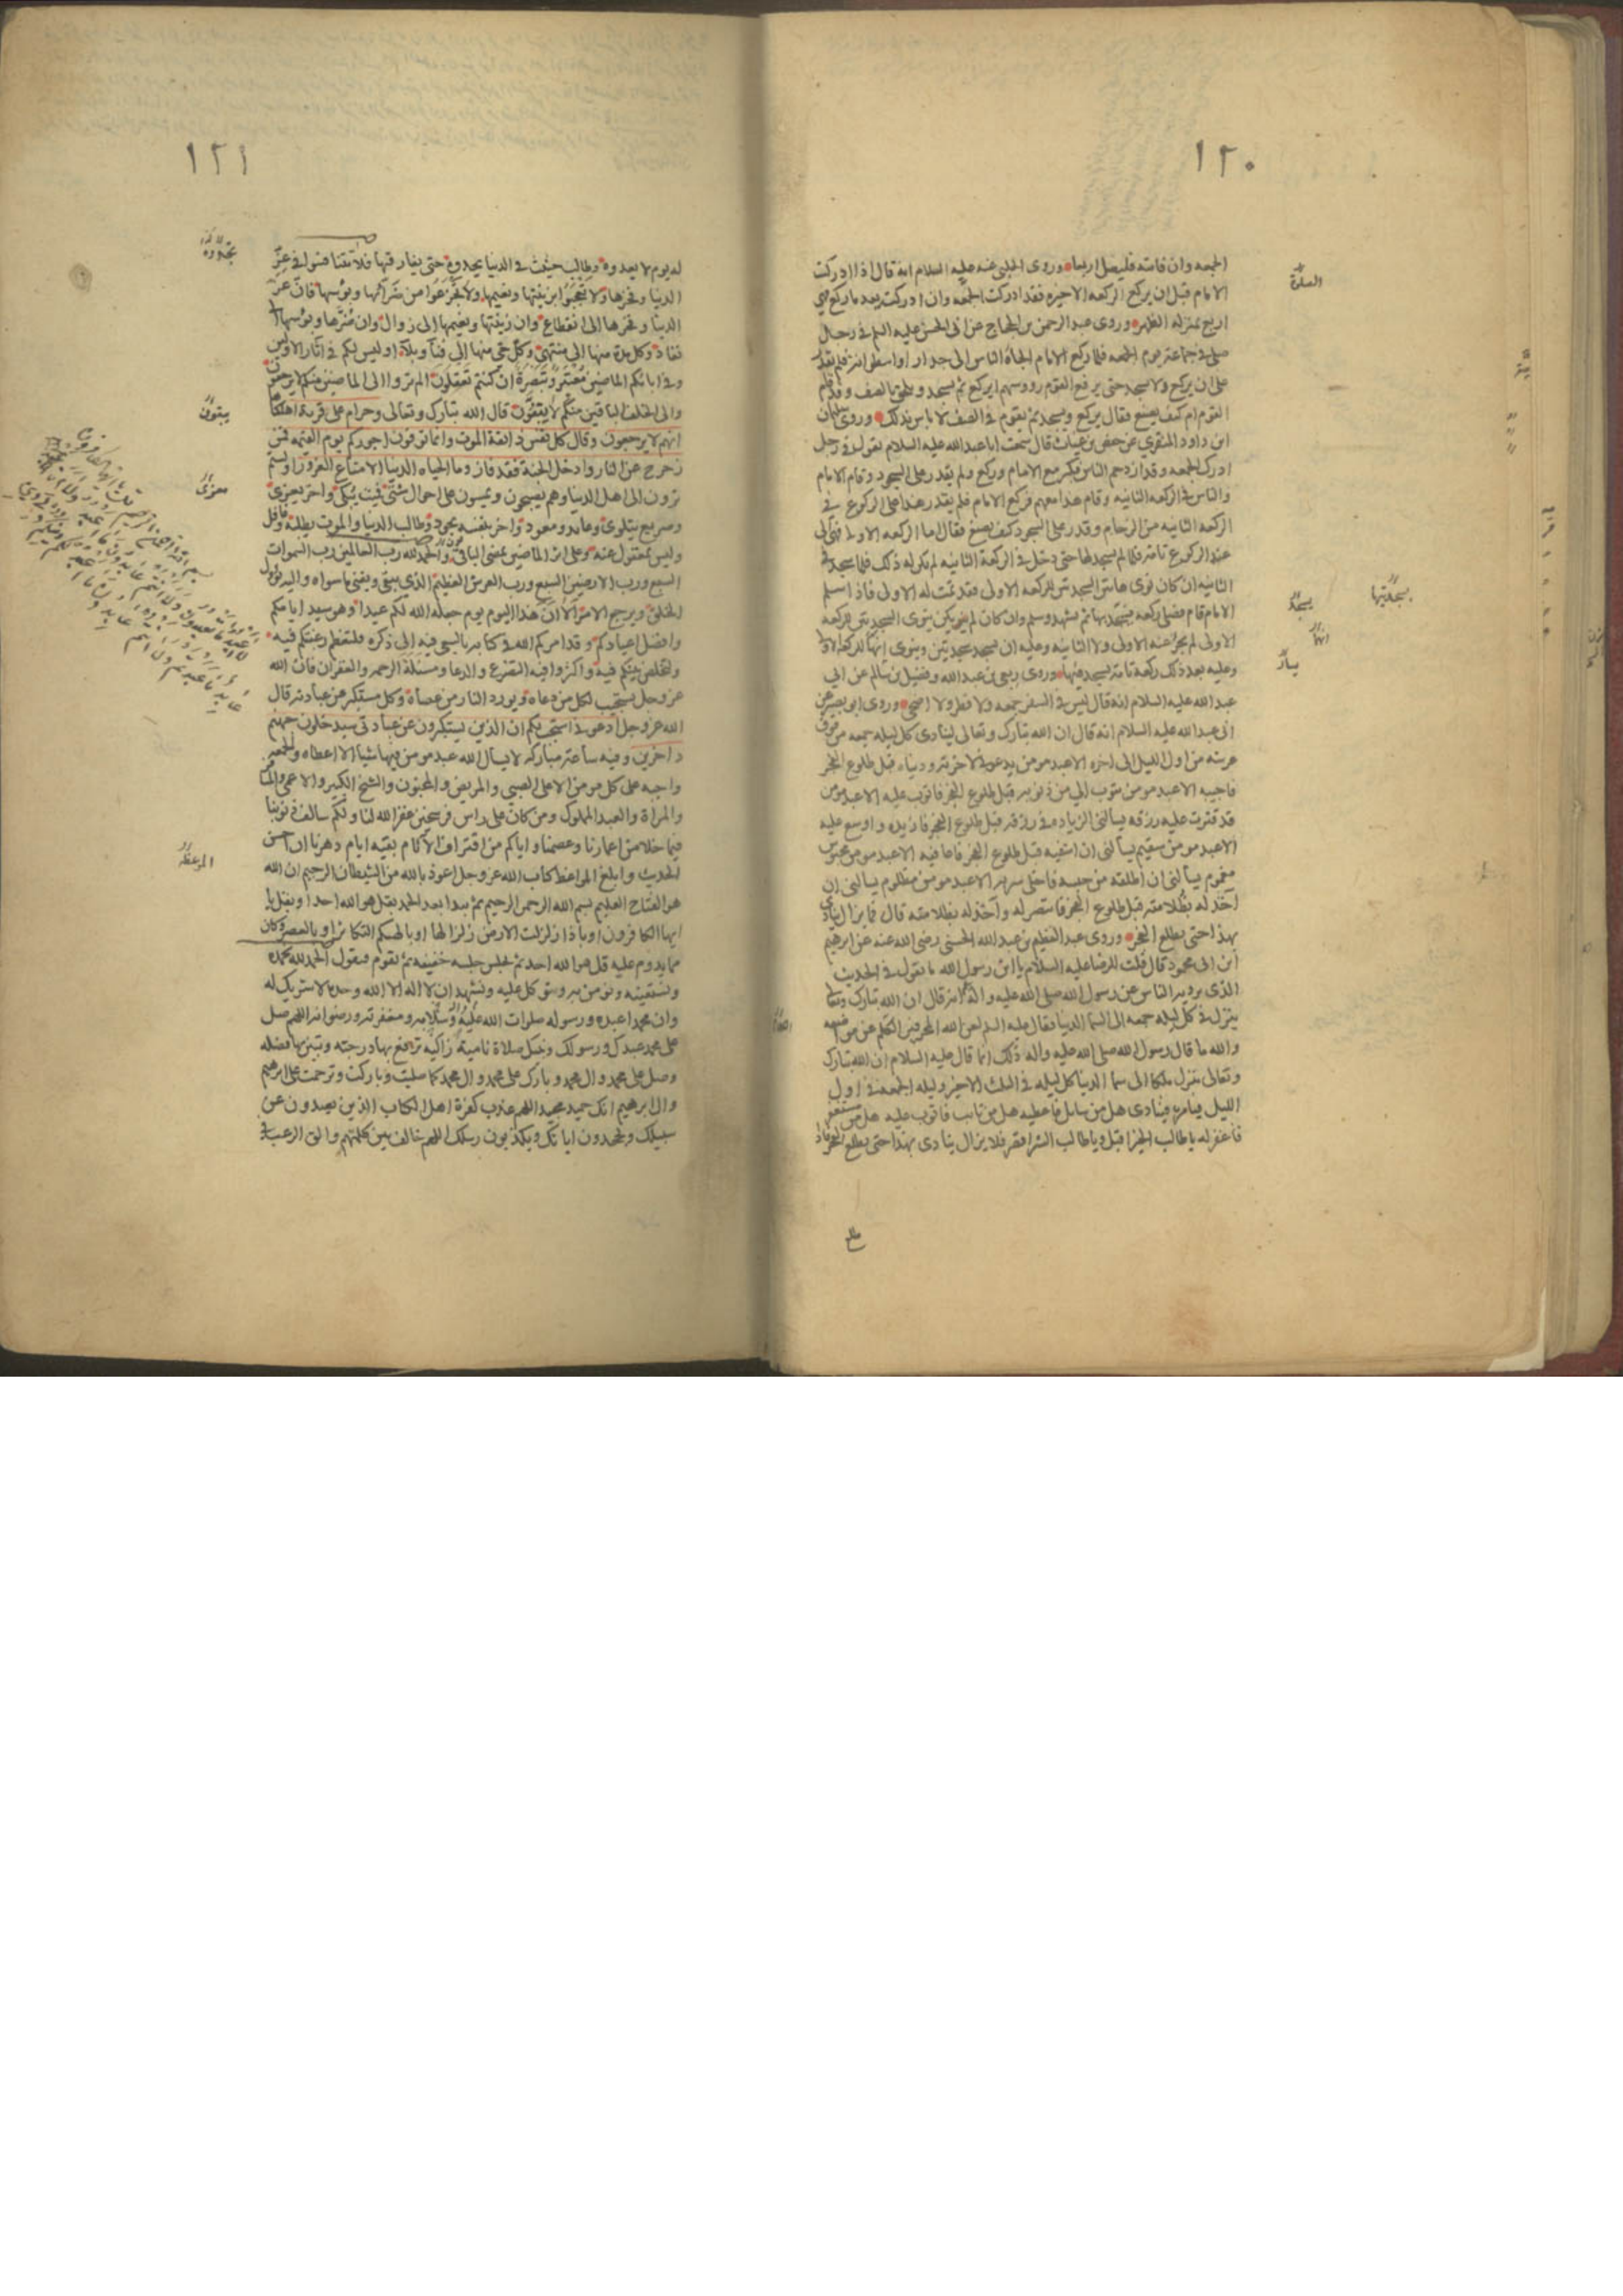 ١٢٠
الجمعه وان فاتته فليصل اربعا وروى الحلبي عنه عليه السلام انه قال اذا ادركت
الصلوة
الامام قبل ان يركع الركعه الاخيره فقد ادركت الجمعه وان ادركته بعد ما ركع فهي
اربع بمنزله الظهر وروى عبد الرحمن بن الحجاج عن ابى الحسن عليه السلم فى رجل
صلى فى جماعة يوم الجمعه فلما ركع الامام الجاه الناس الى جدار او اسطوانة فلم يقدر
على ان يركع ولا يسجد حتى يرفع القوم رووسهم ايركع ثم يسجد ويلحق بالصف وقد قام
القوم ام كيف يصنع فقال يركع ويسجد ثم يقوم فى الصف لا باس بذلك وروى سليمان
ابن داود المنقرى عن حفص بن غياث قال سمعت ابا عبد الله عليه السلام يقول فى رجل
ادرك الجمعه وقد ازدحم الناس فكبر مع الامام وركع ولم يقدر على السجود وقام الامام
والناس فى الركعه الثانيه وقام هذا معهم فركع الامام فلم يقدر هذا على الركوع فى
الركعه الثانيه من الزحام وقدر على السجود كيف يصنع فقال اما الركعه الاولى فهى الى
عند الركوع تامة فلما لم يسجد لها حتى دخل فى الركعة الثانيه لم يكن له ذلك فلما سجد فى
الثانيه ان كان نوى هاتين السجدتين للركعه الاولى فقد تمت له الاولى فاذا سلم
الامام قام فصلى ركعه فيسجد بها ثم يتشهد ويسلم وان كان لم ينو يكن ينوى السجدتين للركعه
الاولى لم يجز عنه الاولى ولا الثانيه وعليه ان يسجد سجدتين وينوى انهما للركعه الاولى
وعليه بعد ذلك ركعة تامة يسجد فيها وروى ربعى بن عبد الله وفضيل بن يسار عن ابى
عبد الله عليه السلام انه قال ليس فى السفر جمعه ولا فطر ولا اضحى وروى ابو بصير عن
ابى عبد الله عليه السلام انه قال ان الله تبارك وتعالى لينادى كل ليله جمعه من فوق
عرشه من اول الليل الى اخره الا عبد مومن يدعونى لاخرته ودنياه قبل طلوع الفجر
فاجيبه الا عبد مومن يتوب الي من ذنوبه قبل طلوع الفجر فاتوب عليه الا عبد مومن
قد قترت عليه رزقه يسالنى الزياده فى رزقه قبل طلوع الفجر فازيده واوسع عليه
الا عبد مومن سقيم يسالنى ان اشفيه قبل طلوع الفجر فاعافيه الا عبد مومن محبوس
مغموم يسالنى ان اطلقه من حبسه فاخلى سربه الا عبد مومن مظلوم يسالنى ان
اخذ له بظلامته قبل طلوع الفجر فانتصر له وآخذ له بظلامته قال فما يزال ينادى
بهذا حتى يطلع الفجر وروى عبد العظيم بن عبد الله الحسنى رضى الله عنه عن ابرهيم
ابن ابى محمود قال قلت للرضا عليه السلام يا ابن رسول الله ما تقول فى الحديث
الذى يرويه الناس عن رسول الله صلى الله عليه واله انه قال ان الله تبارك وتعالى
ينزل فى كل ليله جمعه الى السما الدنيا فقال عليه السلم لعن الله المحرفين الكلم عن مواضعه
والله ما قال رسول الله صلى الله عليه واله ذلك انما قال عليه السلام ان الله تبارك
وتعالى ينزل ملكا الى سما الدنيا كل ليله فى الثلث الاخير وليله الجمعه فى اول
الليل فيامره فينادى هل من سايل فاعطيه هل من تائب فاتوب عليه هل من مستغفر
فاغفر له يا طالب الخير اقبل ويا طالب الشر اقصر فلا يزال ينادى بهذا حتى يطلع الفجر فاذا
١٢١
له يوم لا يعدوه وطالب حثيث فى الدنيا يحدوه حتى يفارقها فلا تتنافسوا فى عز
الدنيا وفخرها ولا تعجبوا بزينتها ونعيمها ولا تجزعوا من ضرائها وبؤسها فان عز
الدنيا وفخرها الى انقطاع وان زينتها ونعيمها الى زوال وان ضرها وبؤسها الى
نفاد وكل مدة منها الى منتهى وكل حى منها الى فنآ وبلآء اوليس لكم فى آثار الاولين
وفى ابائكم الماضين معتبر وتبصرة ان كنتم تعقلون الم تروا الى الماضين منكم لا يرجعون
والى الخلف الباقين منكم لا يبقون قال الله تبارك وتعالى وحرام على قرية اهلكناها
يبقون
انهم لا يرجعون وقال كل نفس ذائقة الموت وانما توفون اجوركم يوم القيمه فمن
زحزح عن النار وادخل الجنة فقد فاز وما الحياه الدنيا الا متاع الغرور اولستم
ترون الى اهل الدنيا وهم يصبحون ويمسون على احوال شتى فميت يبكى واخر يعزى
وصريع يتلوى وعايد ومعود واخر بنفسه يجود وطالب الدنيا والموت يطلبه وغافل
وليس بمغفول عنه وعلى اثر الماضين يمضى الباقى والحمد لله رب العالمين رب السموات
السبع ورب الارضين السبع ورب العرش العظيم الذى يبقى ويفنى ما سواه واليه يؤل
الخلق ويرجع الامر الا ان هذا اليوم يوم جعله الله لكم عيدا وهو سيد ايامكم
وافضل اعيادكم وقد امركم الله فى كتابه بالسعى فيه الى ذكره فلتعظم رغبتكم فيه
ولتخلص نيتكم فيه واكثروا فيه التضرع والدعا ومسئلة الرحمه والغفران فان الله
عز وجل يستجيب لكل من دعاه ويورد النار من عصاه وكل مستكبر عن عبادته قال
الله عز وجل ادعونى استجب لكم ان الذين يستكبرون عن عبادتى سيدخلون جهنم
داخرين وفيه ساعة مباركه لا يسال الله عبد مومن فيها شيا الا اعطاه والجمعه
واجبه على كل مومن الا على الصبى والمريض والمجنون والشيخ الكبير والاعمى والمسافر
والمراة والعبد المملوك ومن كان على راس فرسخين غفر الله لنا ولكم سالف ذنوبنا
فيما خلا من اعمارنا وعصمنا واياكم من اقتراف الآثام بقيه ايام دهرنا ان احسن
الحديث وابلغ المواعظ كتاب الله عز وجل اعوذ بالله من الشيطان الرجيم ان الله
الموعظه
هو الفتاح العليم بسم الله الرحمن الرحيم ثم يبدا بعد الحمد بقل هو الله احد او بقل يا
ايها الكافرون او باذا زلزلت الارض زلزالها او بالهيكم التكاثر او بالعصر وكان
مما يدوم عليه قل هو الله احد ثم يجلس جلسه خفيفه ثم يقوم فيقول الحمد لله نحمده
ونستعينه ونومن به ونتوكل عليه ونشهد ان لا اله الا الله وحده لا شريك له
وان محمدا عبده ورسوله صلوات الله عليه وسلامه ومغفرته ورضوانه اللهم صل
على محمد عبدك ورسولك ونبيك صلاة نامية زاكيه ترفع بها درجته وتبين بها فضله
وصل على محمد وال محمد وبارك على محمد وال محمد كما صليت وباركت وترحمت على ابرهيم
وال ابرهيم انك حميد مجيد اللهم عذب كفرة اهل الكتاب الذين يصدون عن
سبيلك ويجحدون اياتك ويكذبون رسلك اللهم خالف بين كلمتهم والق الرعب فى